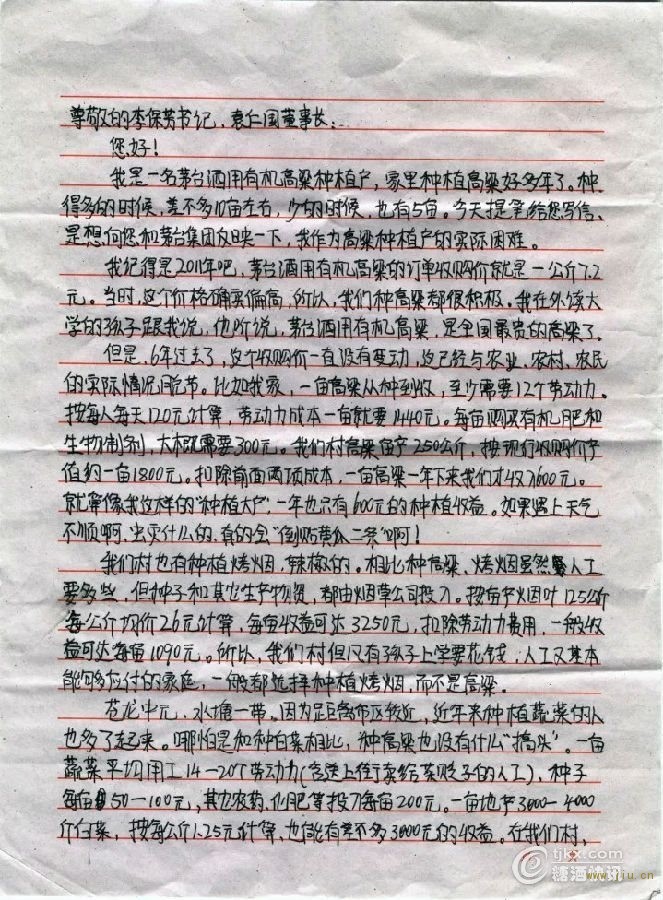 尊敬的李保芳书记、袁仁国董事长：
您好！
我是一名茅台酒用有机高粱种植户，家里种植高粱好多年了。种
得多的时候，差不多10亩左右，少的时候，也有5亩。今天提笔给您写信，
是想向您和茅台集团反映一下，我作为高粱种植户的实际困难。
我记得是2011年吧，茅台酒用有机高粱的订单收购价就是一公斤7.2
元。当时，这个价格确实偏高，所以，我们种高粱都很积极。我在外读大
学的孩子跟我说，他听说，茅台酒用有机高粱，是全国最贵的高粱了。
但是，6年过去了，这个收购价一直没有变动，这已经与农业、农村、农民
的实际情况脱节。比如我家，一亩高粱从种到收，至少需要12个劳动力。
按每人每天120元计算，劳动力成本一亩就要1440元。每亩购买有机肥和
生物制剂，大概需要300元。我们村高粱亩产250公斤，按现行收购价产
值约一亩1800元。扣除前面两项成本，一亩高粱一年下来我们才收入600元。
就算像我这样的“种植大户”，一年也只有600元的种植收益。如果遇上天气
不顺啊、出灾什么的，真的会“倒贴黄瓜二条”啊！
我们村也有种植烤烟、辣椒的。相比种高粱，烤烟虽然人工
要多些，但种子和其它生产物资，都由烟草公司投入。按亩产烟叶125公斤
每公斤均价26元计算，每亩收益可达3250元，扣除劳动力费用，一般收
益可达每亩1090元。所以，我们村但凡有孩子上学要花钱，人工又基本
能够应付的家庭，一般都选择种植烤烟，而不是高粱。
苍龙中元、水塘一带。因为距离市区较近，近年来种植蔬菜的人
也多了起来。哪怕是和种白菜相比，种高粱也没有什么“搞头”。一亩
蔬菜平均用工14—20个劳动力(含送上街卖给菜贩子的人工)，种子
每亩50—100元，其它农药、化肥等投入每亩200元。一亩地产3000—4000
斤白菜，按每公斤1.25元计算，也能有差不多3000元的收益。在我们村，
tjkx.com
糖酒快讯
www.9jiu.cn